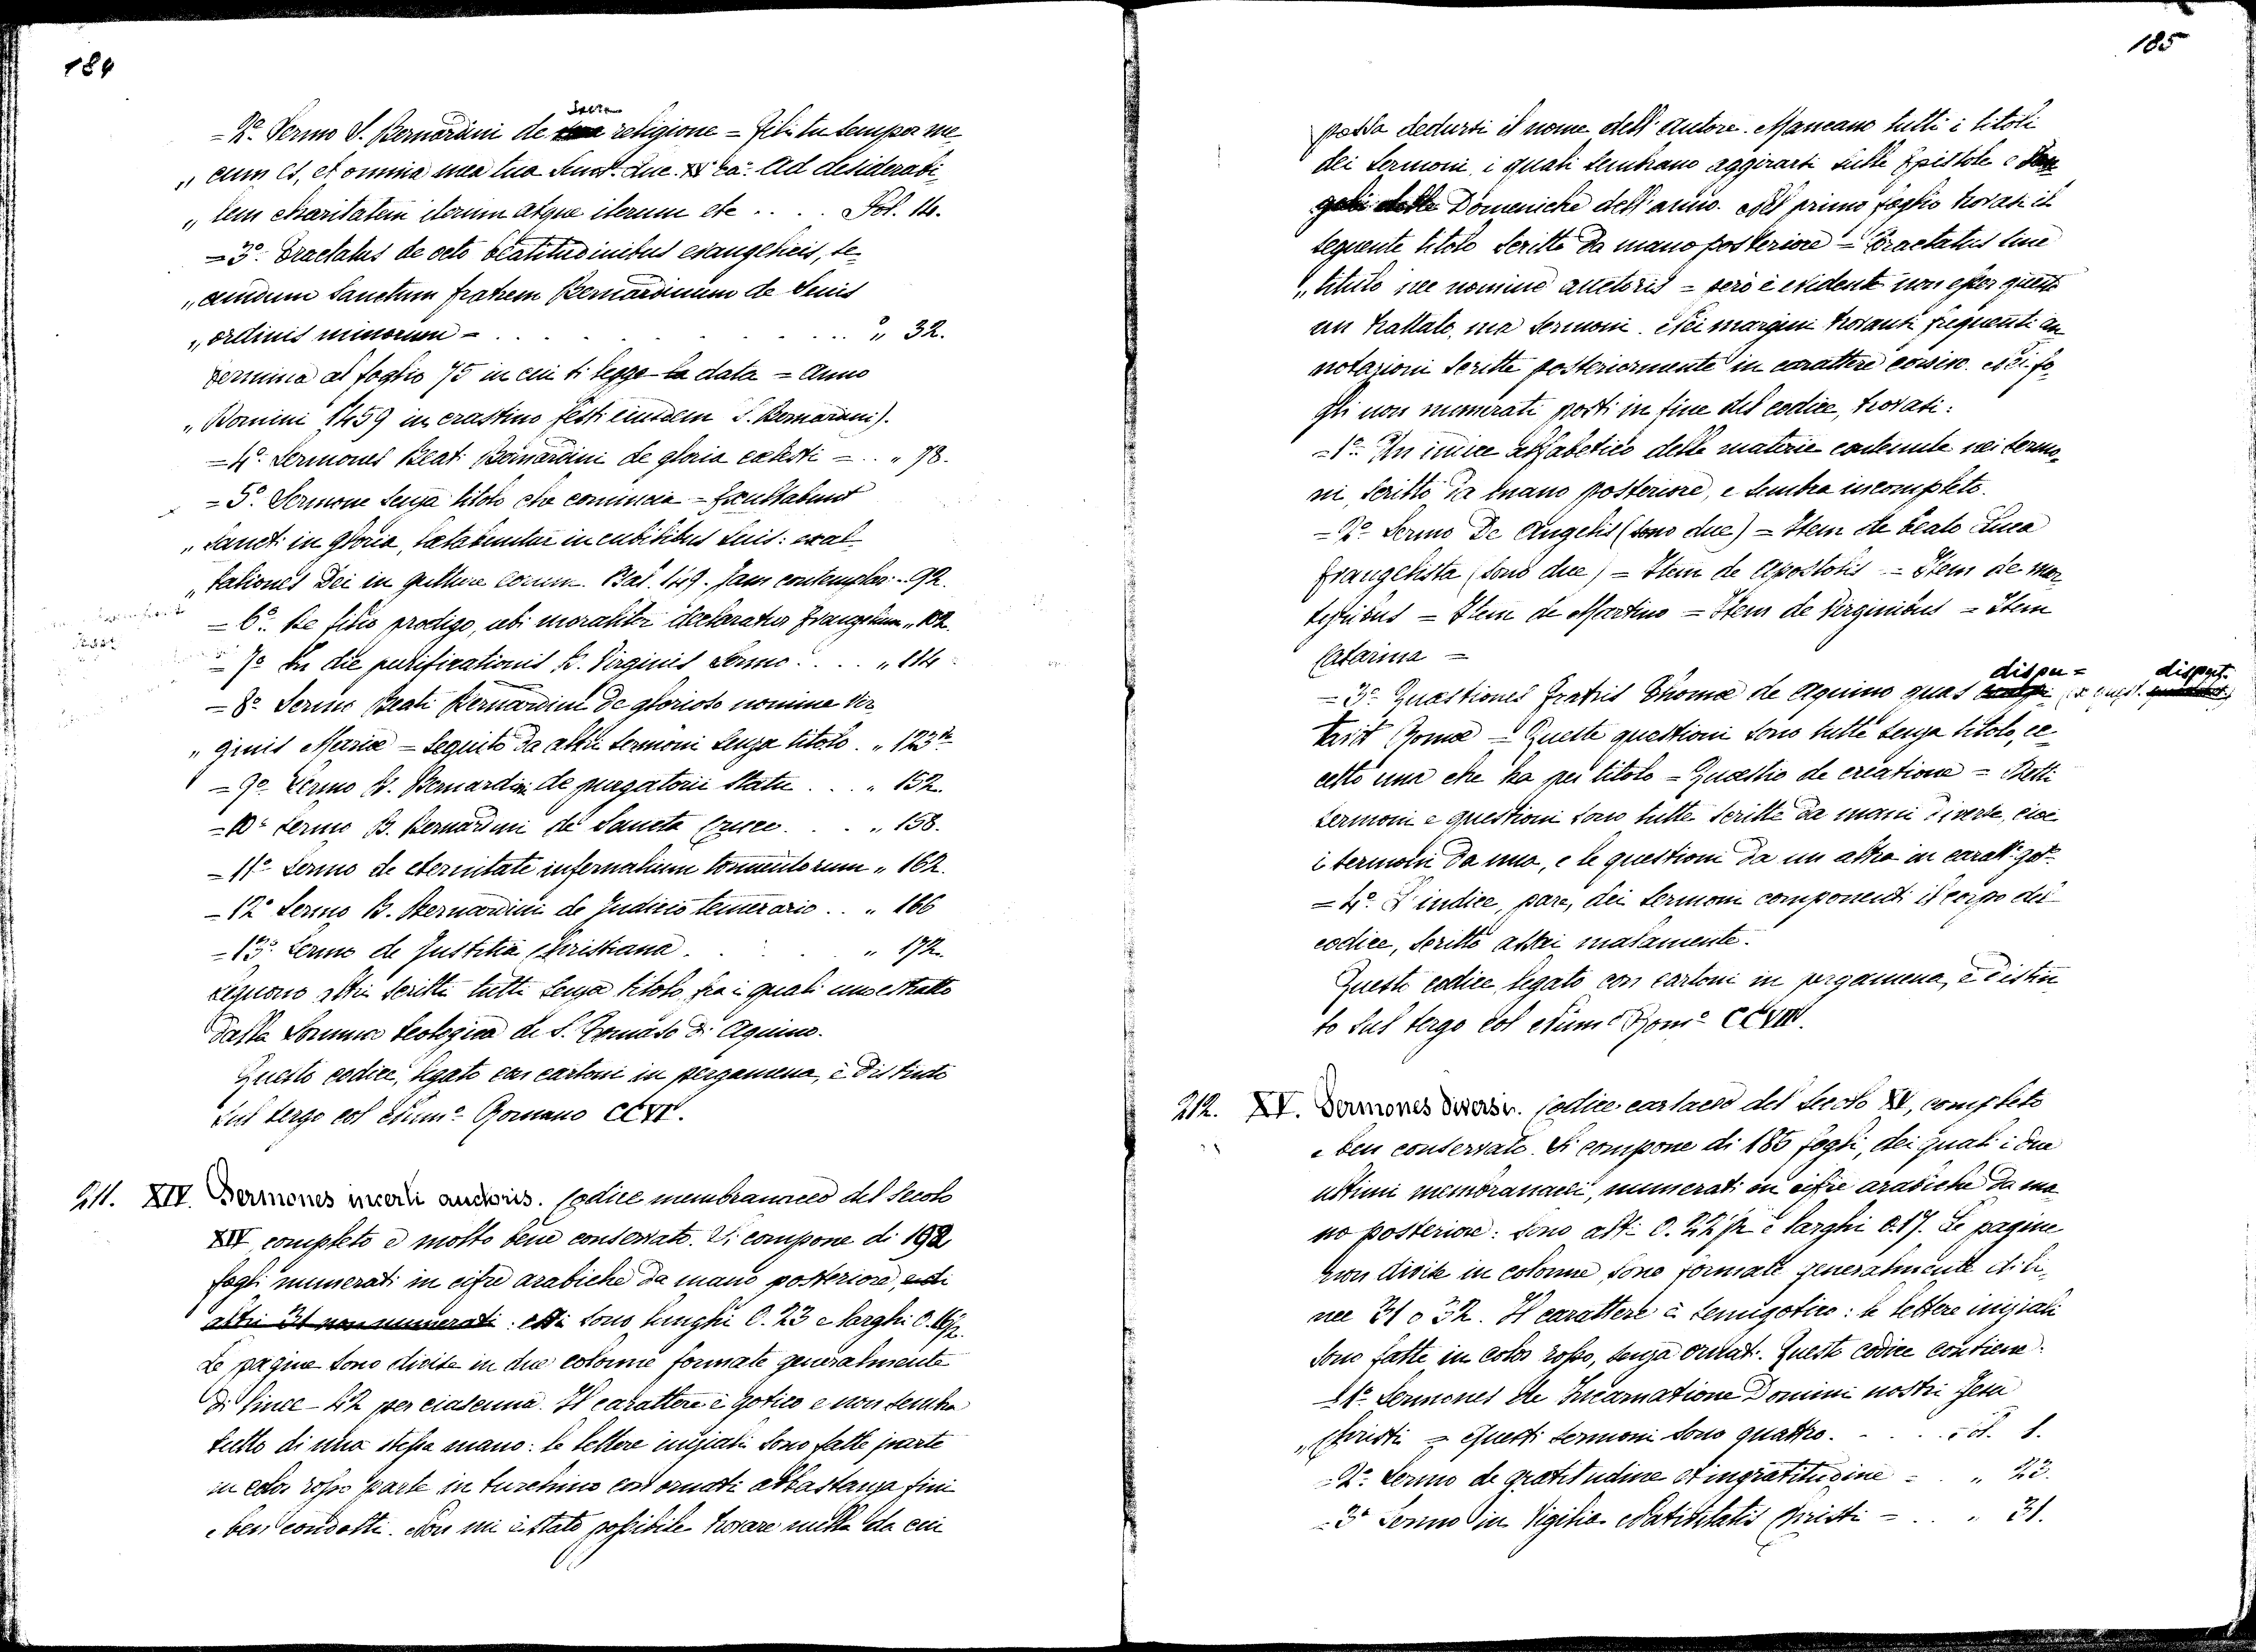 184
= 2.° Sermo S. Bernardini de sacra religione = Fili tu semper me-
„ cum es, et omnia mea tua sunt. Luc. XV ca.° Ad desiderabi-
„ lem charitatem iterum atque iterum etc . . . . Fol. 14.
= 3.° Tractatus de octo beatitudinibus evangelicis, se-
„ cundum Sanctum fratrem Bernardinum de Senis
„ ordinis minorum = . . . . „ 32.
termina al foglio 75 in cui si legge la data = Anno
„ Domini 1459 in crastino festi eiusdem S. Bernardini).
= 4.° Sermones Beati Bernardini de gloria celesti = . . „ 78.
= 5.° Sermone senza titolo che comincia = Exultabunt
„ Sancti in gloria, letabuntur in cubilibus suis: exal-
„ tationes Dei in gutture eorum. Psal. 149. Jam contemplor . . 92.
= 6.° De filio prodigo, ubi moraliter declaratur Evangelium „ 102.
= 7.° In die purificationis B. Virginis Sermo . . . . „ 114
= 8.° Sermo Beati Bernardini de glorioso nomine Vir-
„ ginis Mariæ = Seguito da altri sermoni senza titolo . „ 123
= 9.° Sermo B. Bernardini de purgatorii statu . . . . „ 152.
= 10.° Sermo B. Bernardini de Sancta Cruce . . . „ 158.
= 11.° Sermo de eternitate infernalium tormentorum „ 162.
= 12.° Sermo B. Bernardini de Judicio temerario . . „ 166
= 13.° Sermo de Justitia Christiana . . . „ 172.
Seguono altri scritti tutti senza titolo fra i quali uno estratto
dalla Somma teologica di S. Tomaso di Aquino.
Questo codice, legato con cartoni in pergamena, è distinto
sul tergo col Num.° Romano CCVI.
211. XIV. Sermones incerti auctoris. Codice membranaceo del Secolo
XIV completo e molto bene conservato. Si compone di 192
fogli numerati in cifre arabiche da mano posteriore, e di
altri 31 non numerati: essi sono lunghi 0.23 e larghi 0.16½.
Le pagine sono divise in due colonne formate generalmente
di linee 42 per ciascuna. Il carattere è gotico e non sembra
tutto di una stessa mano: le lettere iniziali sono fatte parte
in color rosso parte in turchino con ornati abbastanza fini
e ben condotti. Non mi è stato possibile trovare nulla da cui
185
possa dedursi il nome dell'autore. Mancano tutti i titoli
dei Sermoni, i quali sembrano aggirarsi sulle Epistole e
Domeniche dell'anno. Nel primo foglio trovasi il
seguente titolo scritto da mano posteriore = Tractatus sine
„ titulo nec nomine auctoris = però è evidente non esser questo
un trattato, ma sermoni. Nei margini trovansi frequenti an-
notazioni scritte posteriormente in carattere corsivo. Nei fo-
gli non numerati posti in fine del codice, trovasi:
= 1.° Un indice alfabetico delle materie contenute nei sermo-
ni, scritto da mano posteriore, e sembra incompleto.
= 2.° Sermo De Angelis (sono due) = Item de beato Luca
Evangelista (sono due) = Item de Apostolis = Item de mar-
tyribus = Item de Martino = Item de Virginibus = Item
Catarina =
= 3.° Quæstiones Fratris Thomæ de Aquino quas dispu= disput.
tavit Romæ = Queste questioni sono tutte senza titolo, ec-
cetto una che ha per titolo = Quæstio de creatione = Detti
sermoni e questioni sono tutte scritte da mani diverse, cioè
i sermoni da una, e le questioni da un altra in caratt. got.
= 4.° L'indice, pare, dei Sermoni componenti il corpo del
codice, scritto assai malamente.
Questo codice, legato con cartoni in pergamena, è distin-
to sul tergo col Num.° Rom.° CCVIII.
212. XV. Sermones diversi. Codice cartaceo del Secolo XV, completo
e ben conservato. Si compone di 185 fogli, dei quali i due
ultimi membranacei, numerati in cifre arabiche da ma-
no posteriore: sono alti 0.22½ e larghi 0.17. Le pagine
non divise in colonne sono formate generalmente di li-
nee 31 o 32. Il carattere è semigotico: le lettere iniziali
sono fatte in color rosso, senza ornati. Questo codice contiene:
= 1.° Sermones de Incarnatione Domini nostri Jesu
„ Christi = Questi sermoni sono quattro . . . . Fol. 1.
= 2.° Sermo de gratitudine et ingratitudine = . „ 23.
= 3.° Sermo in Vigilia Nativitatis Christi = . . „ 31.